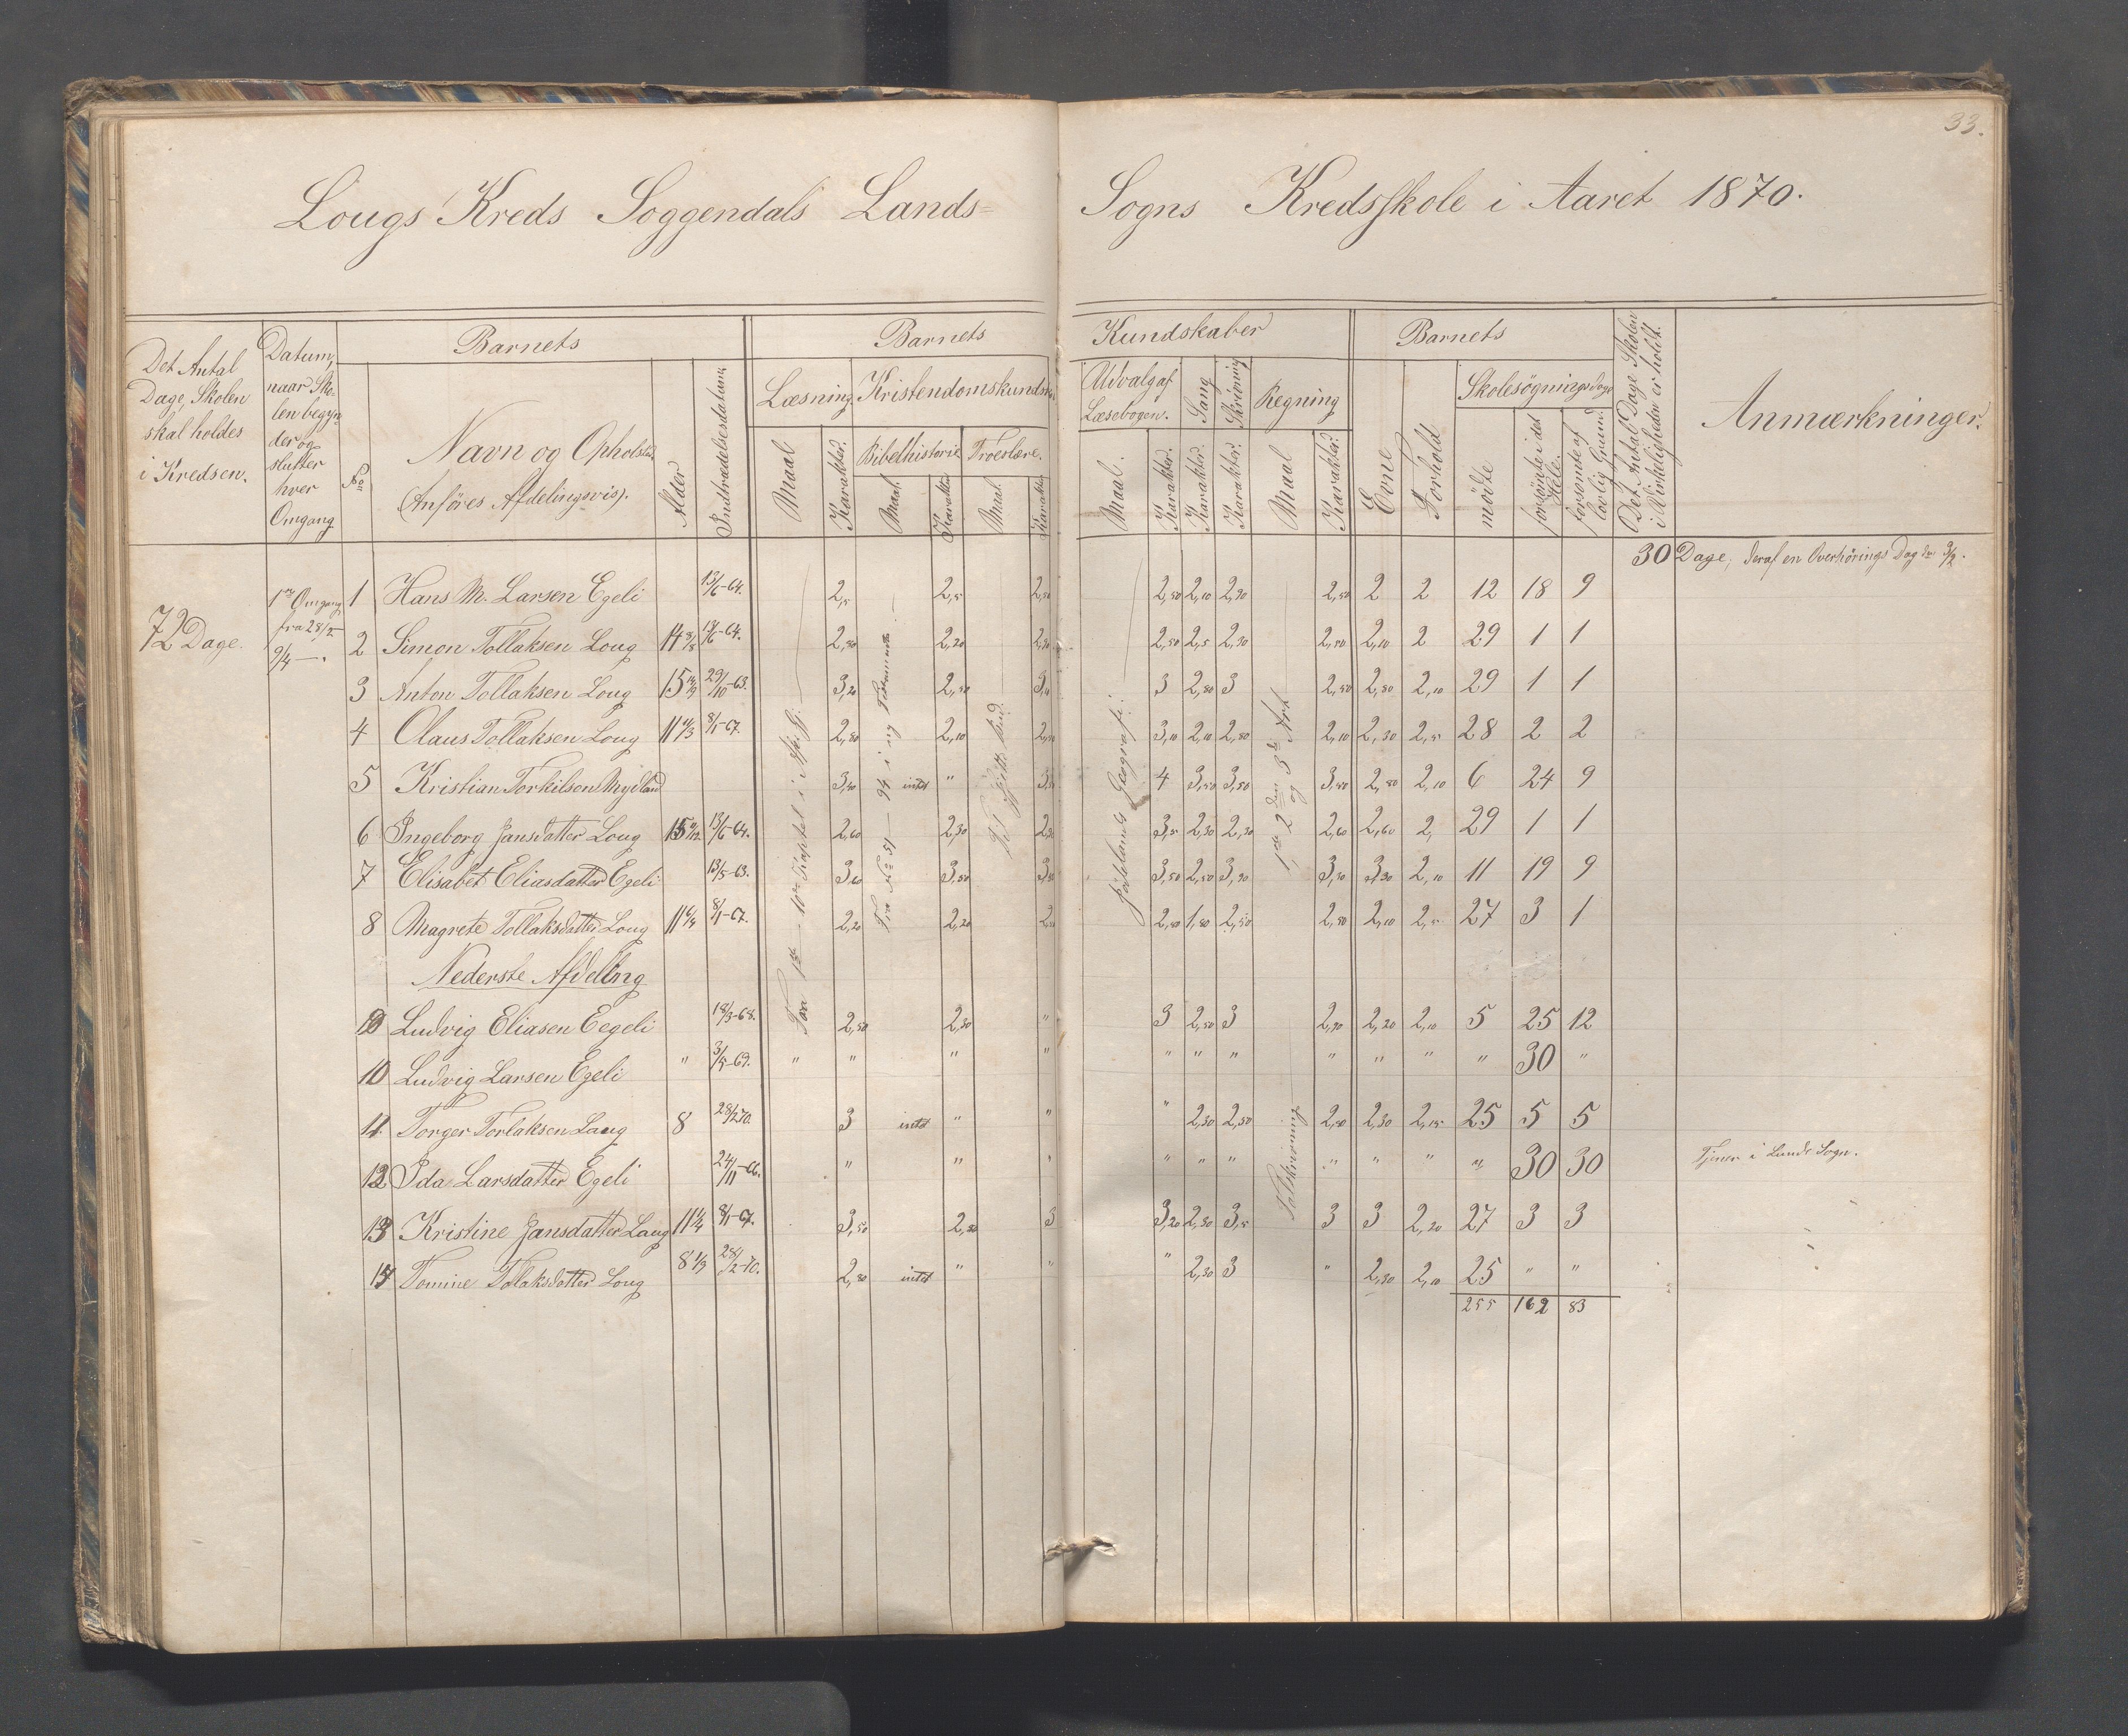 33.
Lougs Kreds Soggendals Lands= Sogns Kredsskole i Aaret 1870.
Det Antal Dage, Skolen skal holdes i Kredsen.
Datum, naar Skolen begynder og slutter hver Omgang
Barnets
No
Navn og Opholsted
(Anföres Afdelingsvis).
Alder
Indtrædelsesdatum
Barnets Kundskaber
Læsning
Maal
Karakter.
Kristendomskundsk
Bibelhistorie
Maal.
Karakter
Troeslære.
Maal.
Karakter
Udvalg af Læsebogen.
Maal.
Karakter.
Sang
Karakter.
Skrivning
Karakter.
Regning
Maal
Karakter.
Barnets
Evne
Forhold
Skolesögningsdage
mödte
forsömte i det Hele.
forsömte af lovlig Grund.
Det Antal Dage Skolen i Virkeligheden er holdt.
Anmærkninger.
30 Dage, deraf en Overhörings Dag
72 Dage.
1ste Omgang fra 28/2 — 9/4 —
1 Hans M. Larsen Egeli 13/6-64. 2,5 2,5 2,50 2,50 2,10 2,30 2,50 2 2 12 18 9
2 Simon Tollaksen Loug 14 13/6-64. 2,80 2,20 2,30 2,50 2,5 2,30 2,50 2,10 2 29 1 1
3 Anton Tollaksen Loug 15 29/10-63. 3,20 2,50 3,10 3 2,80 3 2,50 2,80 2,10 29 1 1
4 Olaus Tollaksen Loug 11 8/1-67. 2,80 2,10 2,50 3,10 2,10 2,80 2,10 2,30 2,5 28 2 2
5 Kristian Torkilsen Mydland 3,40 intet " 4 3,50 3,50 3,50 2,80 2,10 6 24 9
6 Ingeborg Jansdatter Loug 15 13/6-64. 2,60 2,30 3,5 2,30 2,30 2,60 2,60 2, 29 1 1
7 Elisabet Eliasdatter Egeli 13/5-63. 3,60 3,50 3,50 2,50 3,30 3,30 3,30 2,10 11 19 9
8 Magrete Tollaksdatter Loug 11 8/1-67. 2,20 2,20 2,50 1,80 2,50 2,80 2,10 2,5 27 3 1
Nederste Afdeling
9 Ludvig Eliasen Eegeli 18/3-68. 2,50 2,50 " 3 2,50 3 2,90 2,20 2,10 5 25 12
10 Ludvig Larsen Egeli " 3/5-69. " " " " " " " " " " " 30 "
11 Torger Torlaksen Loug 8 28/2 70. 3 intet " " " 2,30 2,50 2,50 2,30 2,15 25 5 5
12 Ida Larsdatter Egeli 24/11-66. " " " " " " " " " " 30 30 Tjener i Lunds Sogn.
13 Kristine Jansdatter Loug 11 8/1-67. 3,50 2,80 3 3,20 2,30 3,5 3 3 2,20 27 3 3
14 Tomine Tolaksdatter Loug 8 28/2-70. 2,80 intet " " " 2,30 3 " 2,30 2,10 25 " "
255 162 83
Fra 1ste - 10de Kapitel i
Fra No 51 — 94 i
Fædrelands Geografi.
1ste 2den og 3de Art
Talskrivning